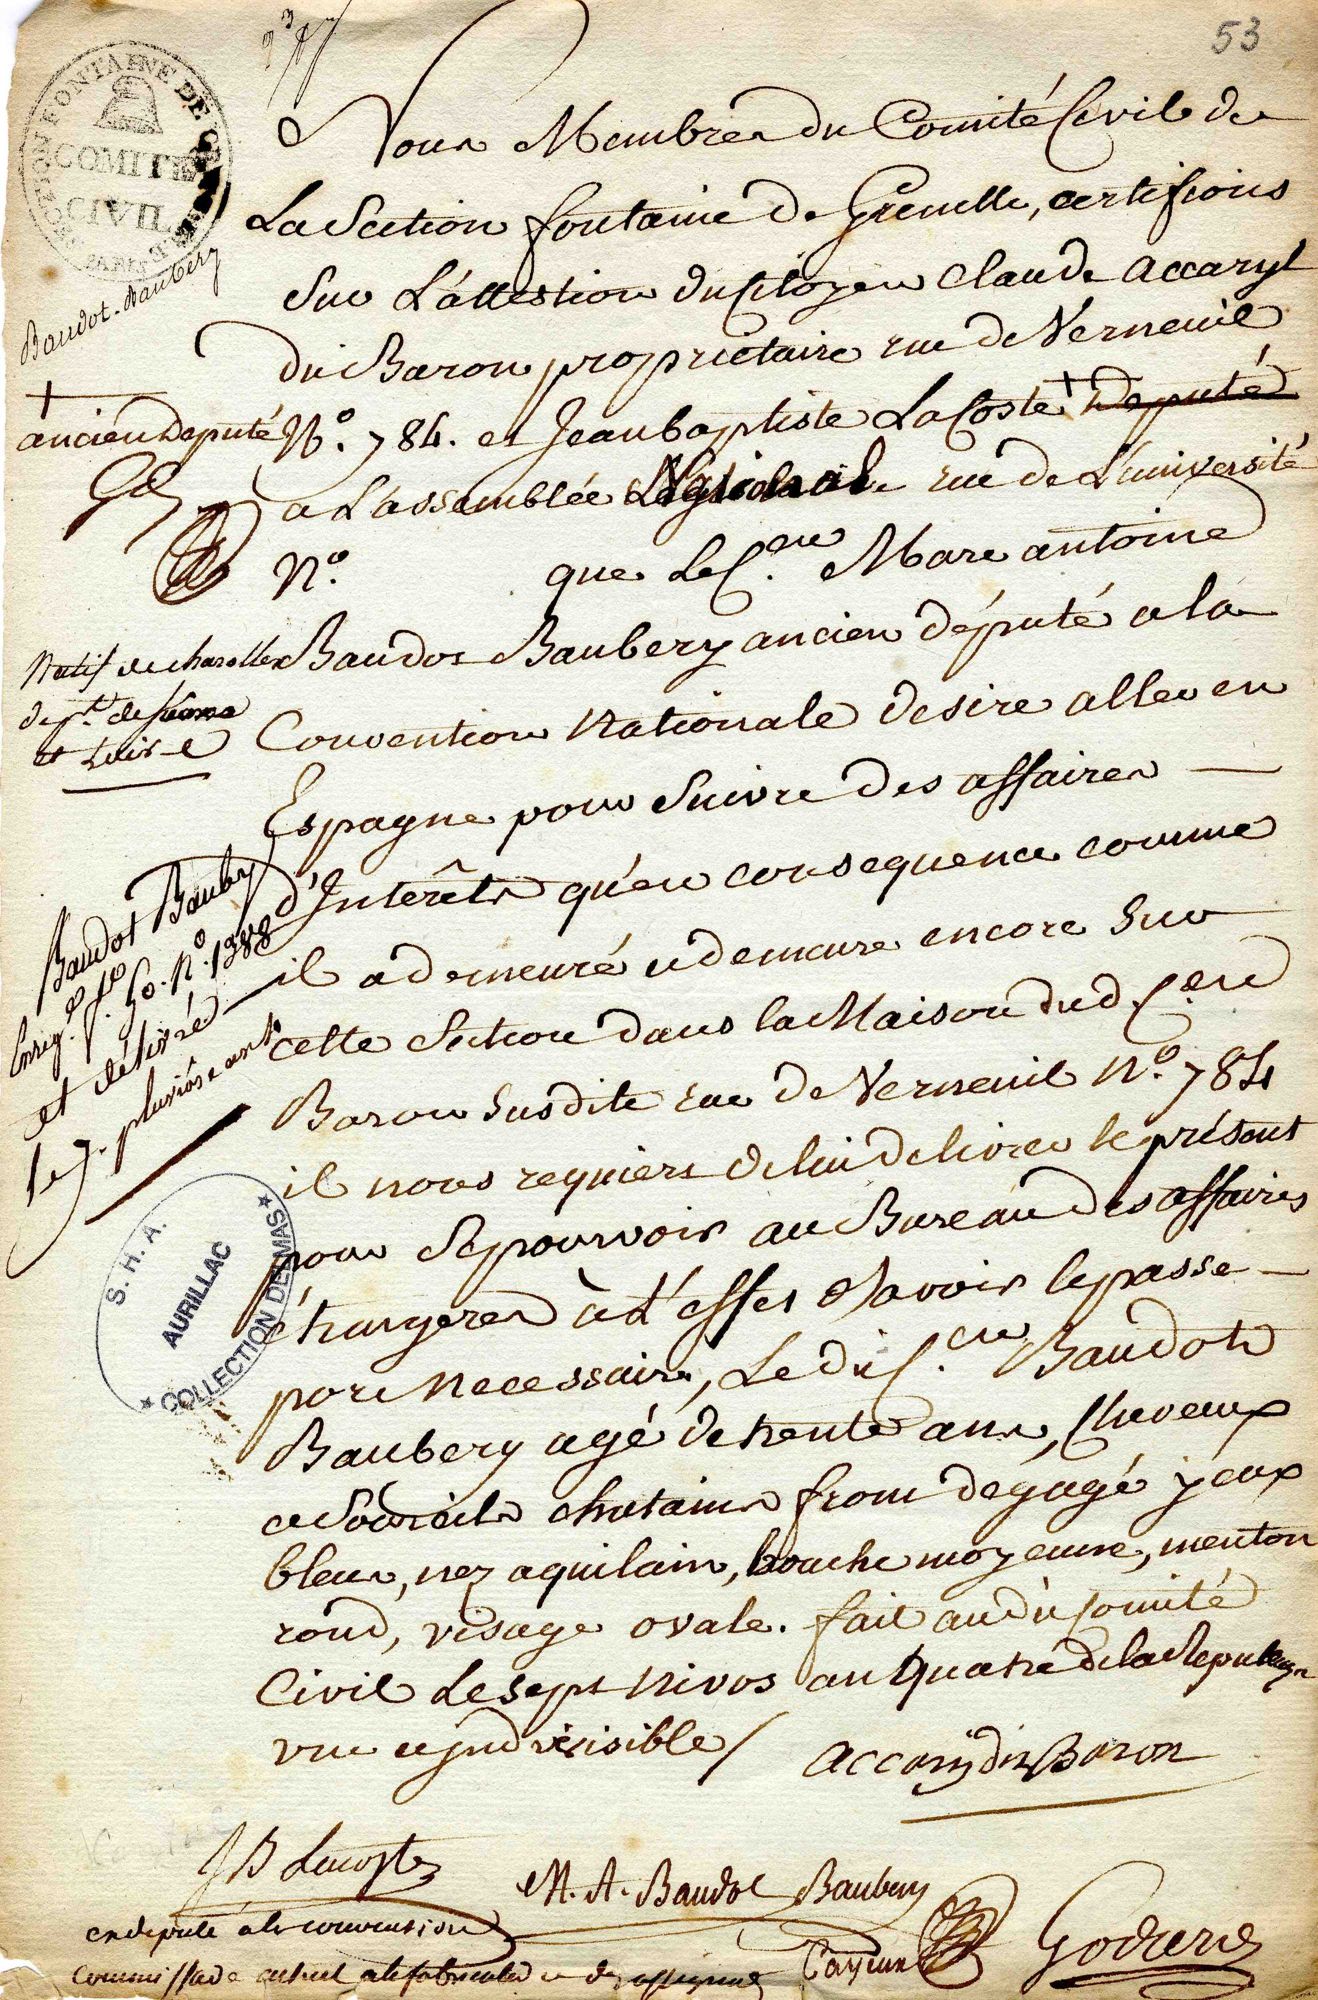 53
SECTION FONTAINE DE GRENELLE
COMITE
CIVIL
PARIS
Baudot-Baubery
Nous Membres du Comité Civil de
La Section fontaine de Grenelle, certifions
Sur L'attestion du Citoyen Claude Accaryl
du Baron propriétaire rue de Verneuil
N.º 784. et Jean baptiste LaCoste + Député
+
ancien Deputé
a L'assemblée rue de L'université
N.º que Le C.en Marc antoine
Baudot Baubery ancien député a la
Natif de charolles
dep.t de Saone
et Loire
Convention Nationale desire aller en
Espagne pour Suivre des affaires —
d'Intérêts qu'en consequence comme
il a demeuré et demeure encore Sur
cette Section dans la Maison dud. C.en
Baron Susdite rue de Verneuil N.º 784
il nous requiere de lui delivrer le présent
pour Se pourvoir au Bureau des affaires
étrangeres à L'effet d'avoir le passe —
port Necessaire, Le dit C.en Baudot
Baubery agé de trente ans, Cheveux
et Sourcils chatains front dégagé yeux
bleus, nez aquilain, bouche moyenne, menton
rond, visage ovale. fait audit Comité
Civil Le sept Nivos an quatre de la Republiqu
une et indivisible /
Baudot Bauby
Enreg.é f.o 50. N.º 1388
et délivré
le 7. pluviôse an 4
S. H. A.
AURILLAC
★ COLLECTION DELMAS ★
accary du Baron
JB Lacoste
M. A. Baudot Baubery
exdeputé à la convention
Godard